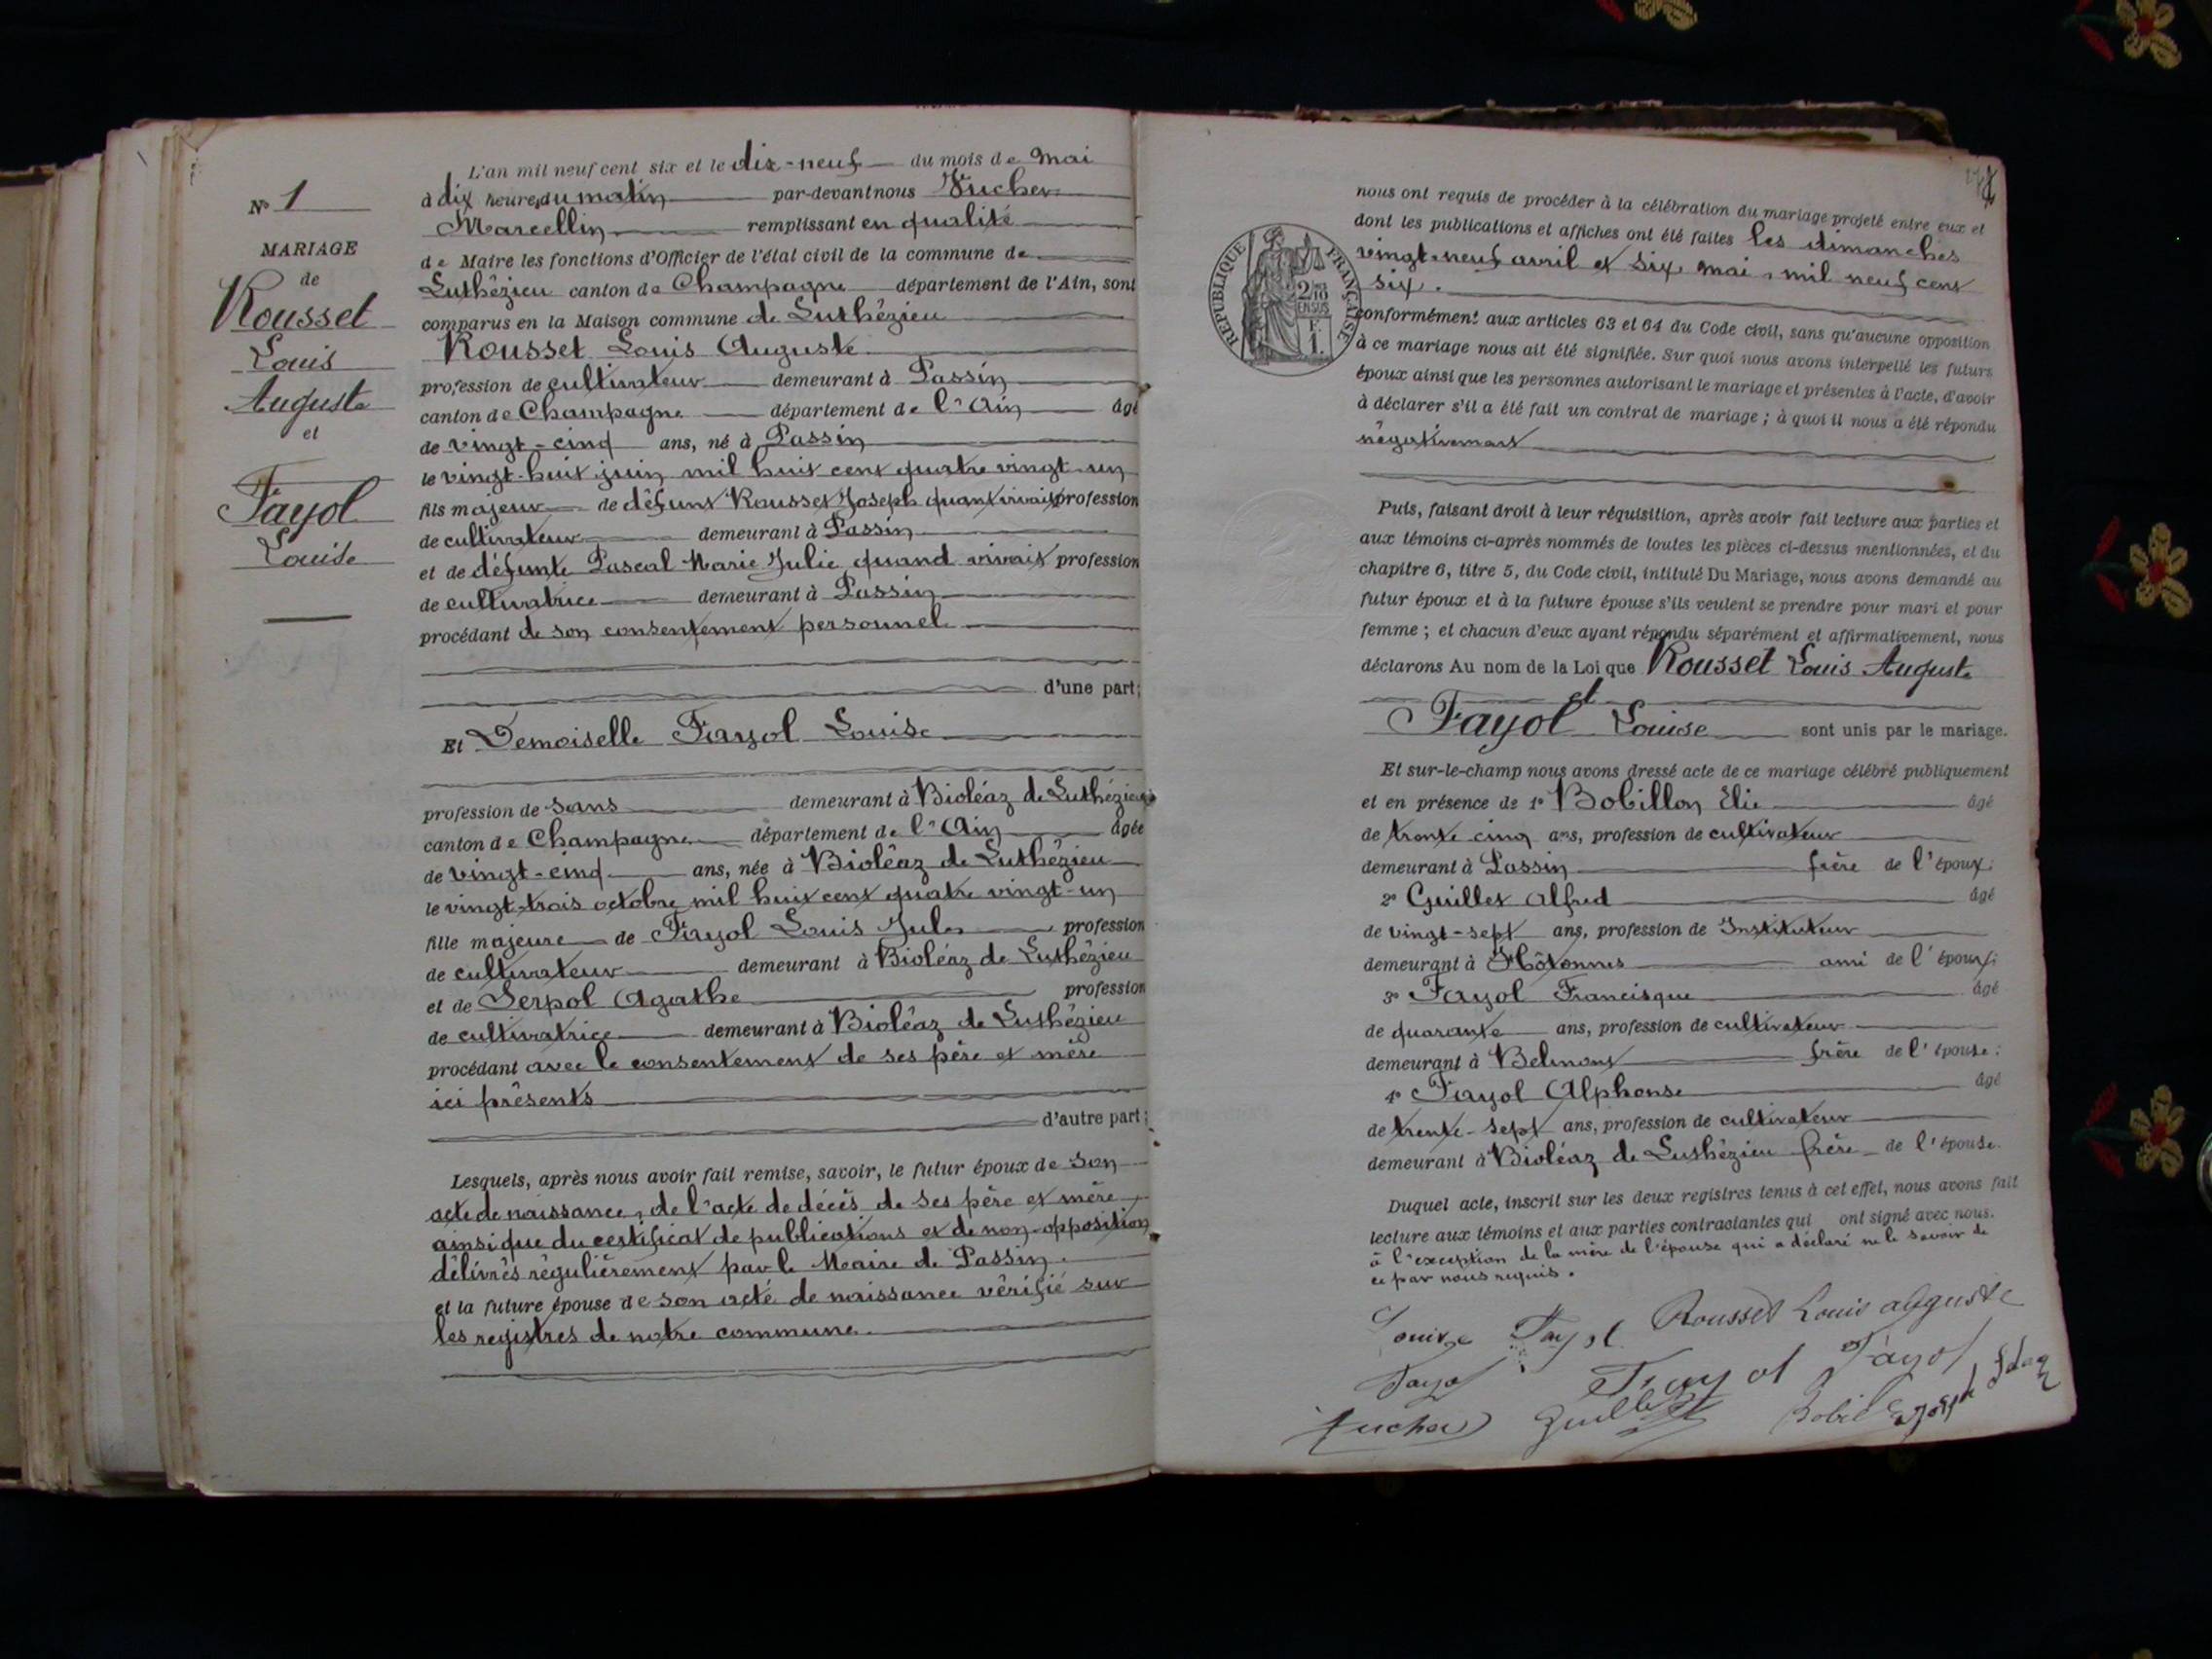 N° 1
MARIAGE
de
Rousset
Louis
Auguste
et
Fayol
Louise
L'an mil neuf cent six et le dix-neuf du mois de Mai
à dix heures du matin par-devant nous Fucher
Marcellin remplissant en qualité
de Maire les fonctions d'Officier de l'état civil de la commune de
Luthézieu canton de Champagne département de l'Ain, sont
comparus en la Maison commune de Luthézieu
Rousset Louis Auguste
profession de cultivateur demeurant à Passin
canton de Champagne département de l'Ain âgé
de vingt-cinq ans, né à Passin
le vingt-huit juin mil huit cent quatre vingt-un
fils majeur de défunt Rousset Joseph quand vivait profession
de cultivateur demeurant à Passin
et de défunte Pascal Marie Julie quand vivait profession
de cultivatrice demeurant à Passin
procédant de son consentement personnel
d'une part;
Et Demoiselle Fayol Louise
profession de sans demeurant à Bioléaz de Luthézieu
canton de Champagne département de l'Ain âgée
de vingt-cinq ans, née à Bioléaz de Luthézieu
le vingt-trois octobre mil huit cent quatre vingt-un
fille majeure de Fayol Louis Jules profession
de cultivateur demeurant à Bioléaz de Luthézieu
et de Serpol Agathe profession
de cultivatrice demeurant à Bioléaz de Luthézieu
procédant avec le consentement de ses père et mère
ici présents
d'autre part;
Lesquels, après nous avoir fait remise, savoir, le futur époux de son
acte de naissance, de l'acte de décès de ses père et mère,
ainsi que du certificat de publications et de non-opposition
délivrés régulièrement par le Maire de Passin.
et la future épouse de son acté de naissance vérifié sur
les registres de notre commune.
REPUBLIQUE FRANÇAISE
2/10
EN SUS
F.
1.
nous ont requis de procéder à la célébration du mariage projeté entre eux et
dont les publications et affiches ont été faites les dimanches
vingt-neuf avril et six mai, mil neuf cent
six.
conformément aux articles 63 et 64 du Code civil, sans qu'aucune opposition
à ce mariage nous ait été signifiée. Sur quoi nous avons interpellé les futurs
époux ainsi que les personnes autorisant le mariage et présentes à l'acte, d'avoir
à déclarer s'il a été fait un contrat de mariage ; à quoi il nous a été répondu
négativement
Puis, faisant droit à leur réquisition, après avoir fait lecture aux parties et
aux témoins ci-après nommés de toutes les pièces ci-dessus mentionnées, et du
chapitre 6, titre 5, du Code civil, intitulé Du Mariage, nous avons demandé au
futur époux et à la future épouse s'ils veulent se prendre pour mari et pour
femme ; et chacun d'eux ayant répondu séparément et affirmativement, nous
déclarons Au nom de la Loi que Rousset Louis Auguste
et
Fayol Louise sont unis par le mariage.
Et sur-le-champ nous avons dressé acte de ce mariage célébré publiquement
et en présence de 1° Bobillon Elie âgé
de trente cinq ans, profession de cultivateur
demeurant à Passin frère de l'époux;
2° Guillet Alfred âgé
de vingt-sept ans, profession de Instituteur
demeurant à Hôtonnes ami de l'époux;
3° Fayol Francisque âgé
de quarante ans, profession de cultivateur
demeurant à Belmont frère de l'épouse;
4° Fayol Alphonse âgé
de trente-sept ans, profession de cultivateur
demeurant à Bioléaz de Luthézieu frère de l'épouse.
Duquel acte, inscrit sur les deux registres tenus à cet effet, nous avons fait
lecture aux témoins et aux parties contractantes qui ont signé avec nous.
à l'exception de la mère de l'épouse qui a déclaré ne le savoir de
ce par nous requis.
Louise Fayol Rousset Louis auguste
Fayol Fayol Fayol
Fucher Guillet